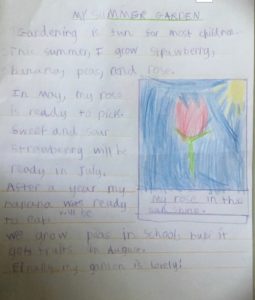 MY SUMMER GARDEN
Gardening is fun for most children.
This summer, I grow strawberry,
banana, peas, and rose.
In May, my rose
is ready to pick.
Sweet and sour
strawberry will be
ready in July.
After a year my
banana was ready
to eat. will be
We grow peas in school, but it
gets fruits in August.
Finally, my garden is lovely!
My rose in the
sun shine.